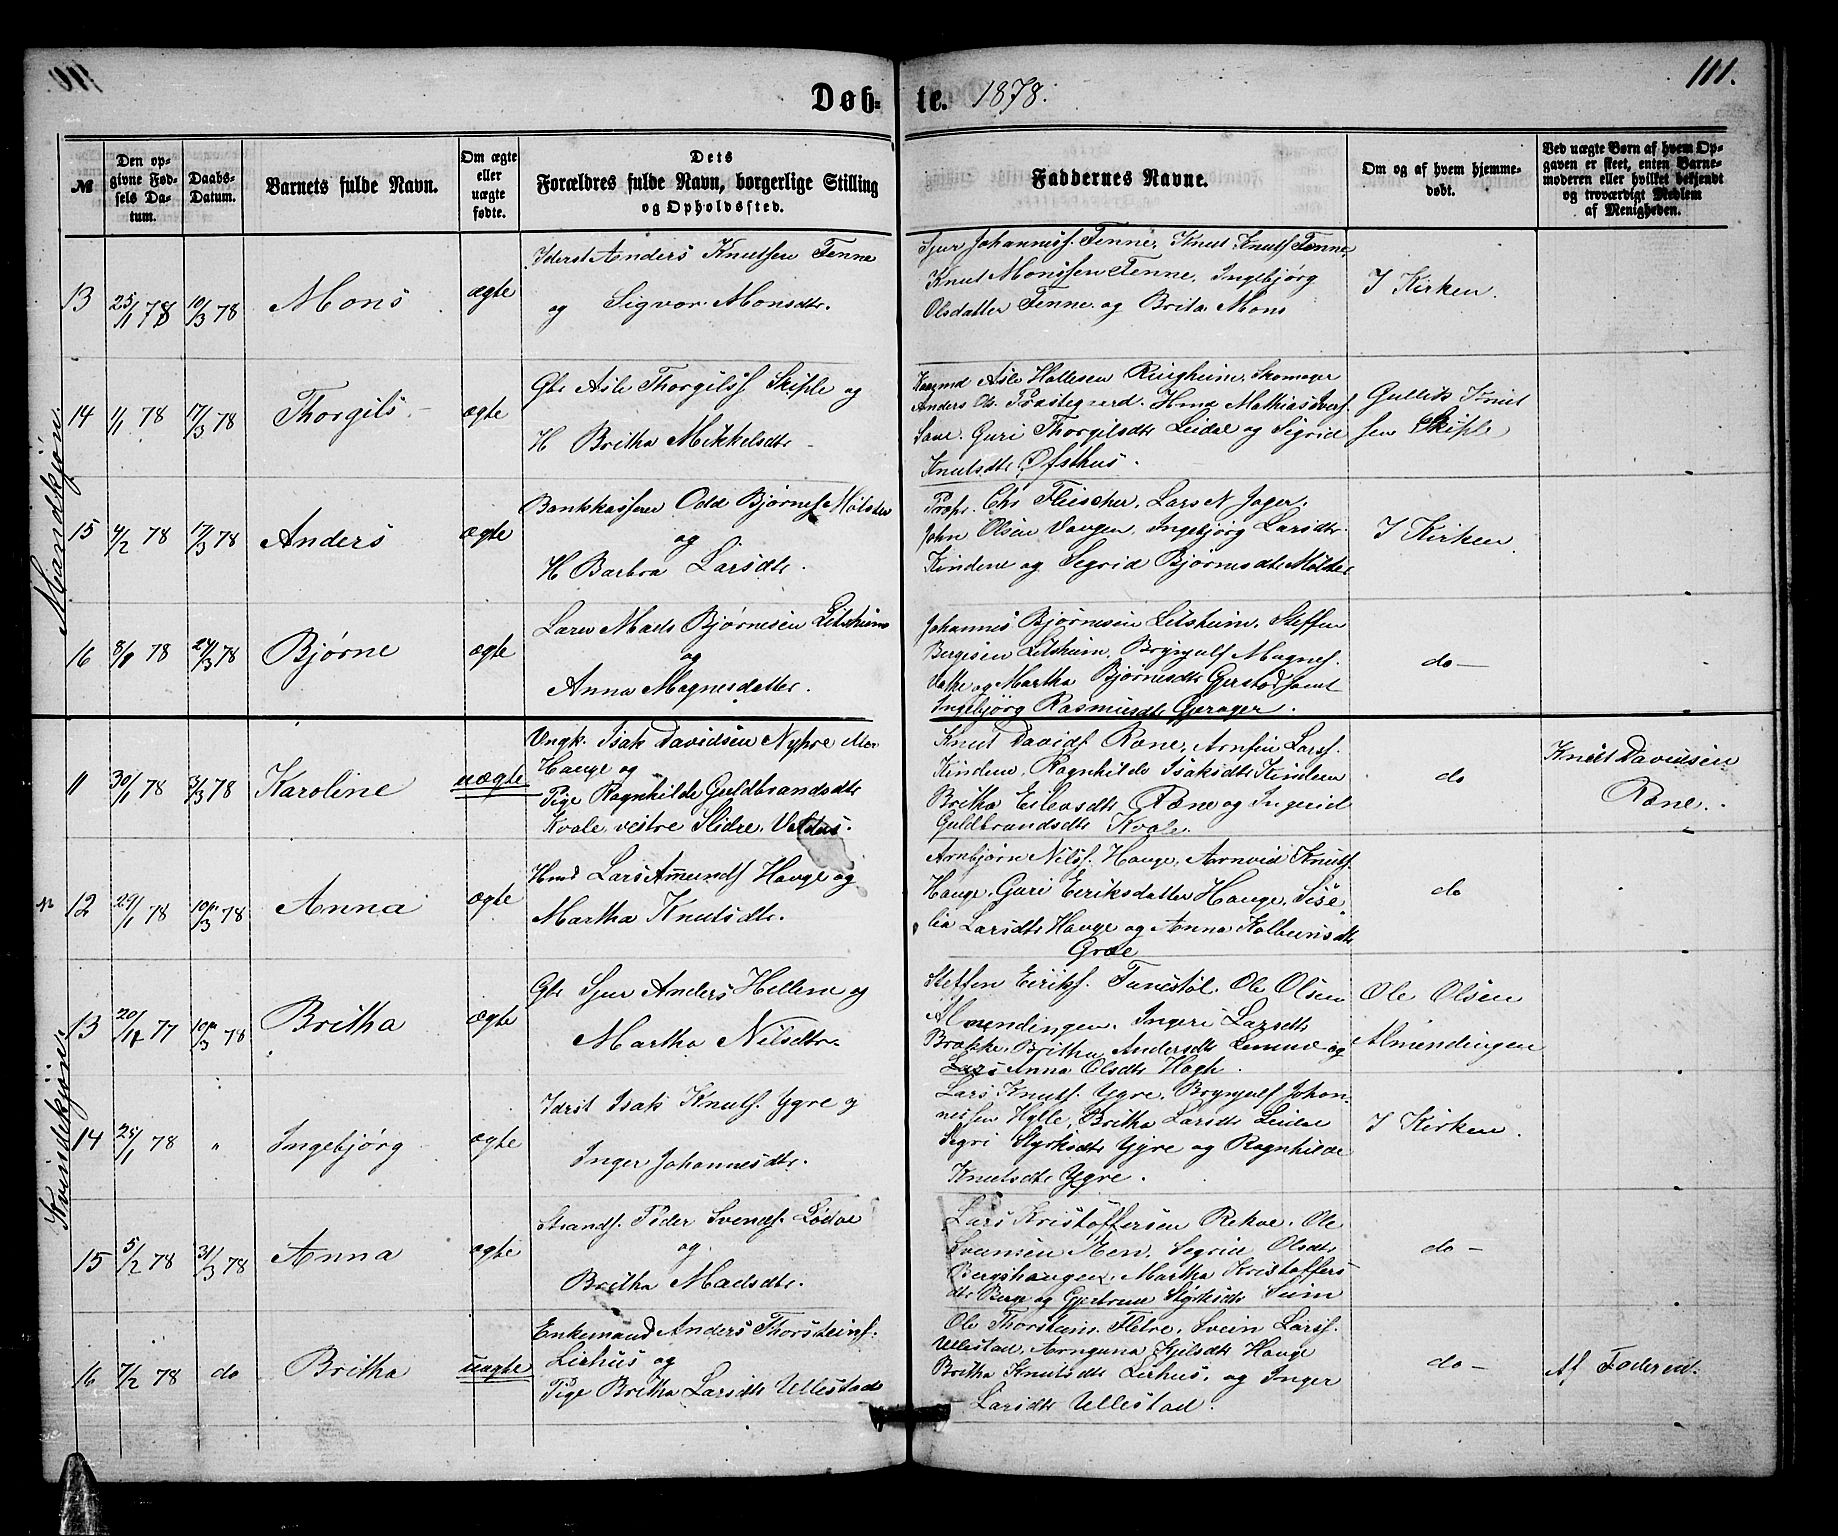 Døb- te. 1878. 111.
№
Den opgivne Fødsels Datum.
Daabs-Datum.
Barnets fulde Navn.
Om ægte eller uægte fødte.
Dets Forældres fulde Navn, borgerlige Stilling og Opholdssted.
Faddernes Navne.
Om og af hvem hjemmedøbt.
Ved uægte Børn af hvem Opgaven er skeet, enten Barnemoderen eller hvilket bekjendt og troværdigt Medlem af Menigheden.
Mandkjøn.
13 25/1 78 10/3 78 Mons ægte
Iderst Anders Knutsen Tenne
og Sigvor Monsdtr.
Sjur Johanness. Tenne, Knut Knuts. Tenne,
Knut Monssen Tenne, Ingebjørg
Olsdatter Tenne og Brita Mons
I Kirken.
14 1/1 78 17/3 78 Thorgils ægte
Gbr Asle Thorgilss. Skiple og
H Britha Mikkelsdtr
Asle Hallesen Ringheim, Skomager
Anders Ols. Præstegaard, Hmd Mathias Ivers.
Saue, Guri Thorgilsdtr Leidal og Sigrid
Knutsdtr Øfsthus.
Gullik Knut
sen Skiple
15 4/2 78 17/3 78 Anders ægte
Bankkasserer Odd Bjørnes. Mølster
og
H Barbra Larsdtr.
Propr. Chr Fleischer, Lars N Jager,
John Olsen Vangen, Ingebjørg Larsdtr
Kindene og Segrid Bjørnesdtr Mølster
I Kirken.
16 8/1 78 24/3 78 Bjørne ægte
Mads Bjørnesen Litsheim
og
Anna Magnesdatter.
Johannes Bjørnesen Litsheim, Steffen
Bergesen Litsheim, Brynjulf Magnes.
Dakke og Martha Bjørnesdtr Gjerstad samt
Ingebjørg Rasmusdtr Gjerager.
do
Kvindekjøn.
11 30/1 78 3/3 78 Karoline uægte
Ungk. Isak Davidsen Nyhre
Hauge og
Pige Ragnhilde Guldbrandsdtr
Kvale, vestre Slidre, Valders.
Knut Davids. Rone, Arnfin Larss.
Kindem, Ragnhilde Isaksdtr Kindem
Britha Eilevsdtr Rone og Ingerid
Guldbrandsdtr Kvale.
do
Knut Davidsen
Rone.
12 29/1 78 10/3 78 Anna ægte
Hmd Lars Amunds. Hauge og
Martha Knutsdtr.
Arnbjørn Nilss. Hauge, Arnvid Knuts.
Hauge, Guri Eeriksdatter Hauge, Sise
lia Larsdtr Hauge og Anna Kolbeinsdtr
Grove
do
13 20/12 77 10/3 78 Britha ægte
Gbr Sjur Anders Hellene og
Martha Nilsdtr.
Steffen Eeriks. Tunestøl, Ole Olsen
Almendingen, Ingeri Larsdtr
Brække, Britha Andersdtr og
Anna Olsdtr
Ole Olsen
Almendingen
14 25/1 78 " Ingebjørg ægte
Iderst Isak Knuts. Ygre og
Inger Johannesdtr.
Lars Knuts. Ygre, Brynjulf Johan-
nessen Hylle, Britha Larsdtr
Segri Styrksdtr Ygre og Ragnhilde
Knutsdtr Ygre.
I Kirken.
15 5/2 78 31/3 78 Anna ægte
Strands. Peder Svends. Lødve
og
Britha Madsdtr.
Lars Kristoffersen Rekve, Ole
Svensen Æen, Segrid Olsdtr
Bergshaugen, Martha Kristoffers
dtr Berge og Gjertrud Styrksdtr
do
16 7/2 78 do Britha uægte
Enkemand Anders Thorsteins.
Lirhus og
Pige Britha Larsdtr Ullestad
Ole Thorsteins. Fletre, Svein Larss.
Ullestad, Arnguna Kjelsdtr Hauge
Britha Knutsdtr Lirhus, og Inger
Larsdtr Ullestad.
do
Af Faderen.